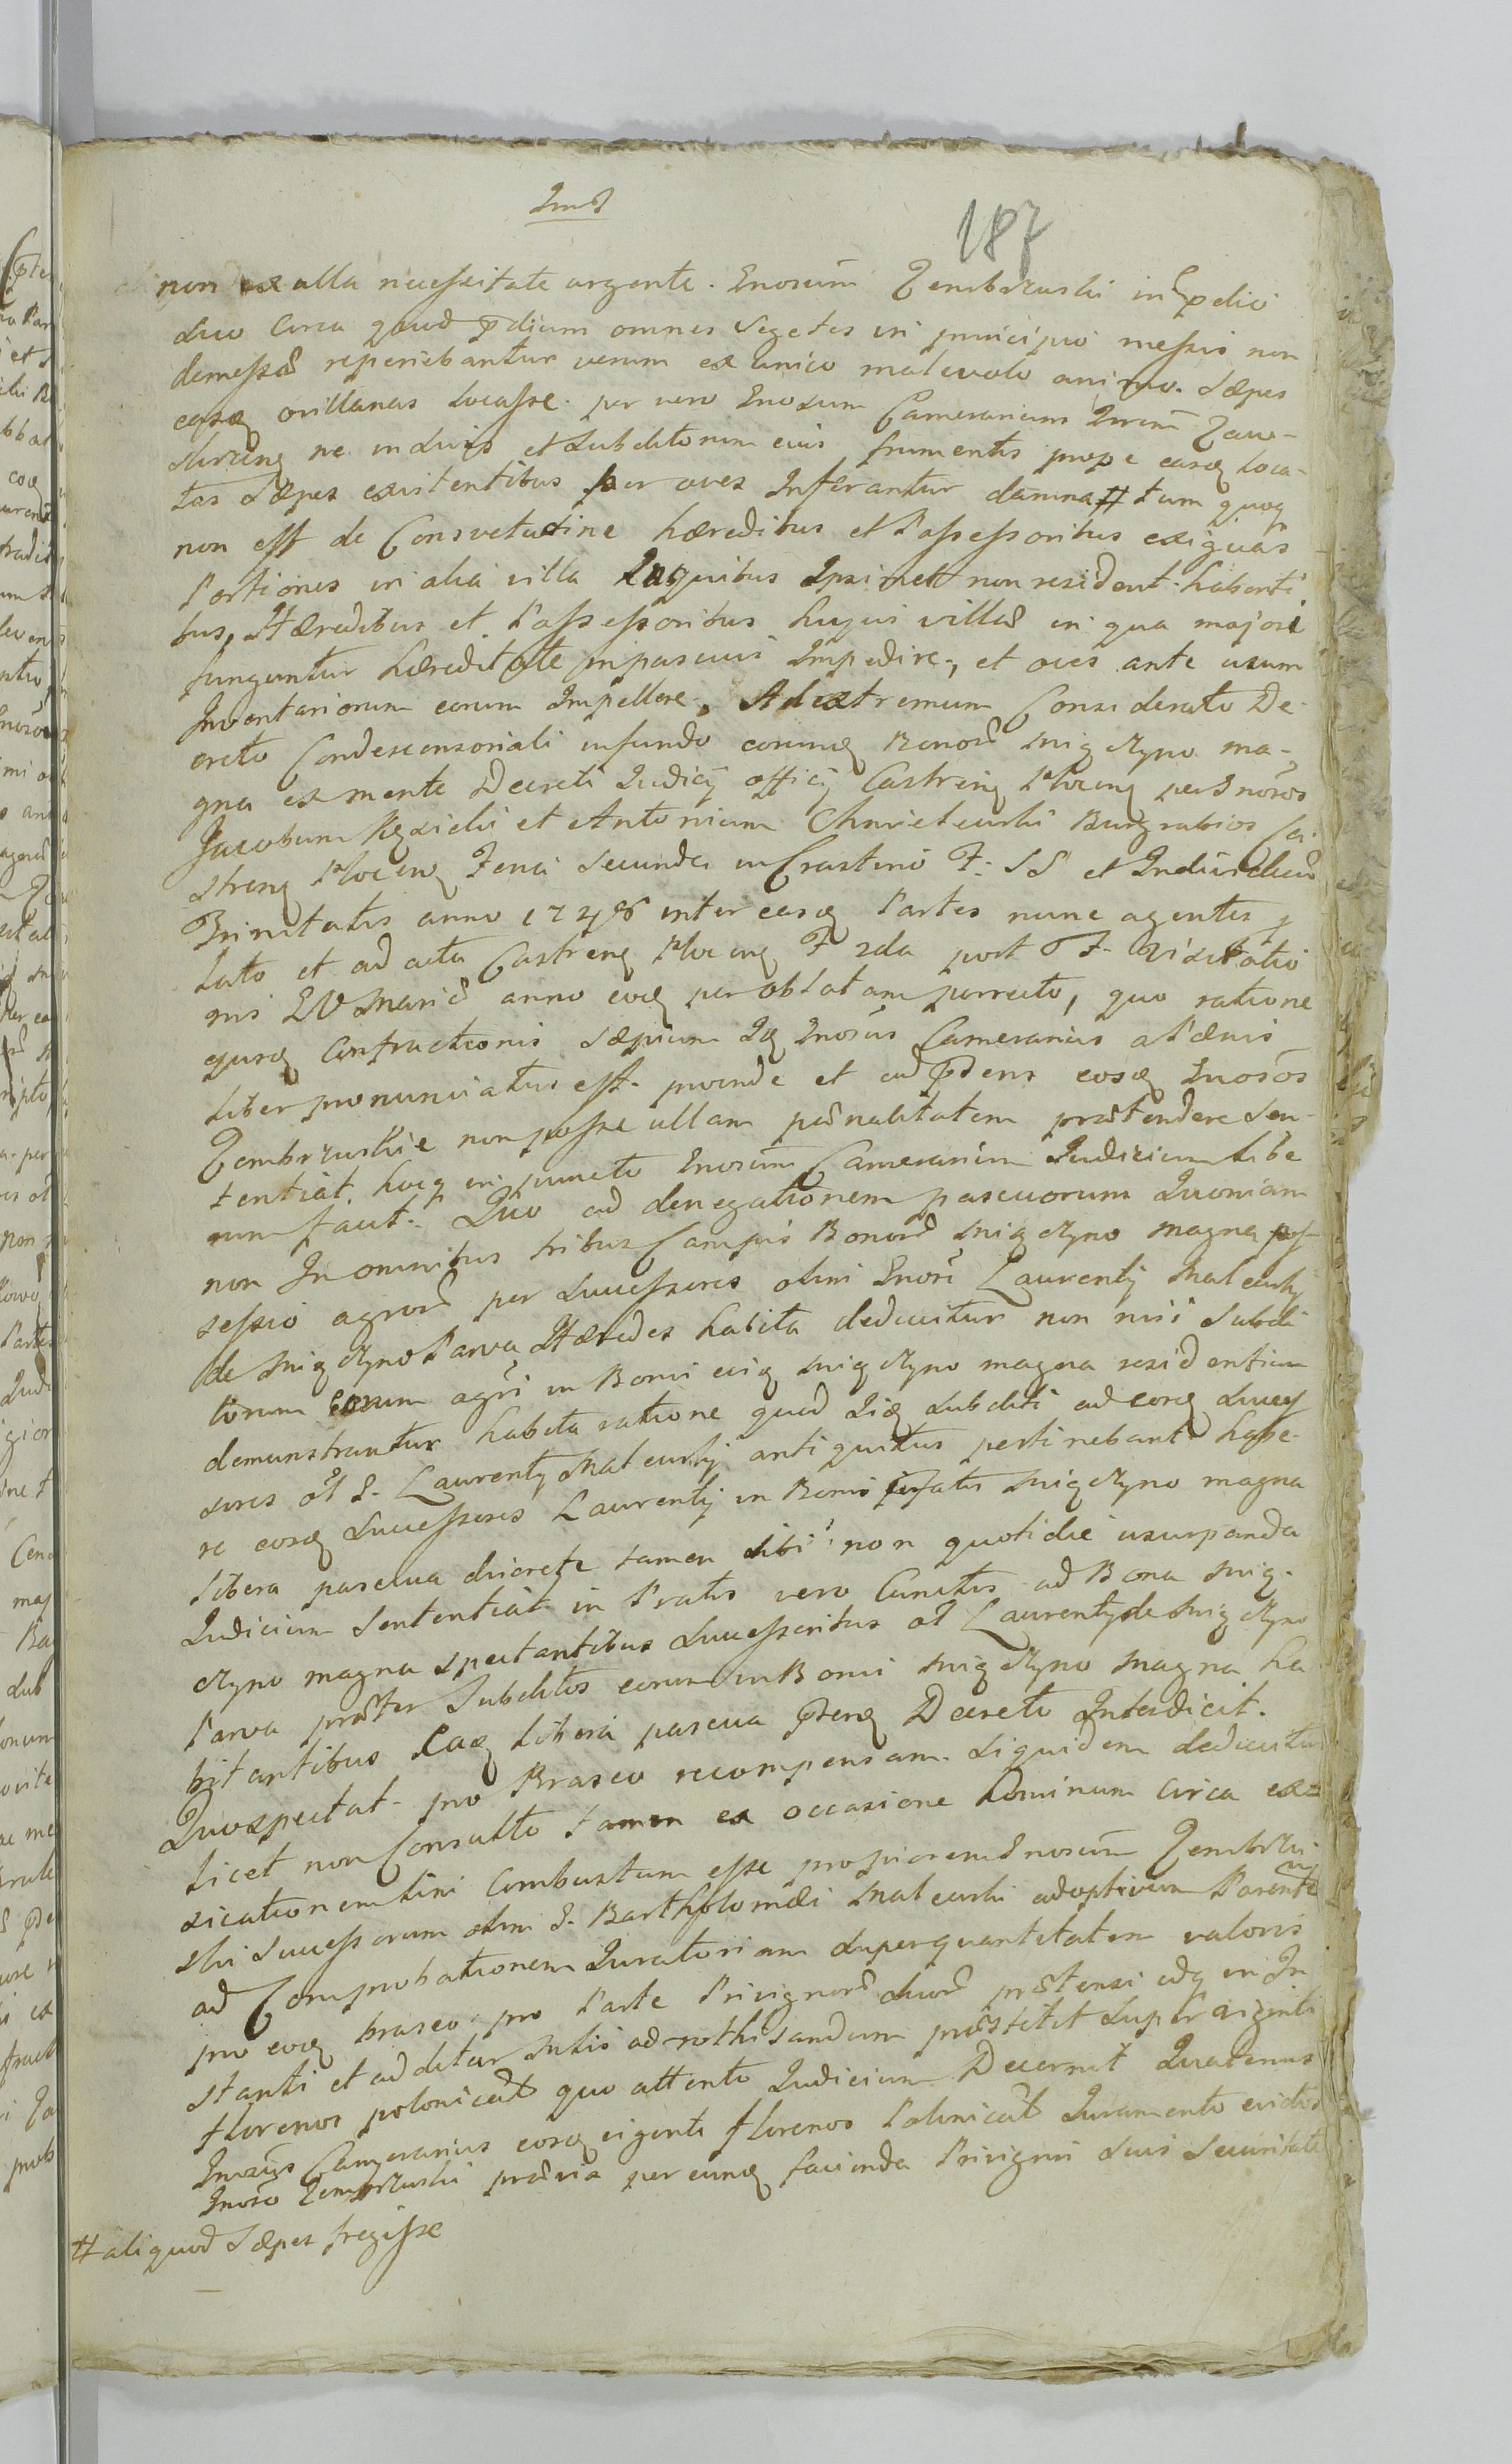 187
non ex ulla necessitate urgente. Gnosum Zembrzuski in prdio
suo circa quod prdium omnes segetes in principio messis non
demessae reperiebantur verum ex unico malevolo animo. Saepes
easq ovillanas locasse. per vero Gnosum Camerarium
ne in suis et subditorum eius frumentis prope easq loca-
tas saepes existentibus per oves Inferantur damna # tum quoq
non est de Consvetudine haeredibus et Possessoribus exiguas
Portiones in alia villa In quibus Ipsimet non resident habenti
bus, Haeredibus et Possessoribus hujus villae in qua majori
funguntur haereditate in pascuis Impedire, et oves ante usum
Inventariorum eorum Impellere, Ad extremum Considerato De-
creto Condescensoriali in fundo eorumq Bonor ma-
gna ex mente Decreti Judicy officy Castreng Ploceng per Gnosos
Jacobum et Antonium Burgrabios Ca-
streng Ploceng Feria secunda in Crastino F: SS et Individuae
Trinitatis anno inter easq Partes nunc agentes
lato et ad acta Castreng Ploceng F 2da post F. Visitatio
nis BV Mariae anno eoq per oblatam porrecto, quo ratione
ejusq confractionis saepium Iq Gnosus Camerarius a Paenis
liber pronunciatus est. proinde et ad prdens eosq Gnosos
Zembrzuskie non posse ullam paenalitatem praetendere sen-
tentiat. hocq in puncto Gnosum Camerarium Judicium libe
rum facit. Quo ad denegationem pascuorum Quoniam
non In omnibus tribus Campis Bonor magna pos-
sessio agror per successores olim Gnosi Laurenty
de Parva Haeredes habita deducitur non nisi Subdi
torum eorum agri in Bonis eiq magna residentium
demonstrantur habita ratione quod Iiq subditi ad eosq succes
sores ol G. Laurenty antiquitus pertinebant. habe-
re eosq successores Laurenty in Bonis magna
libera pascua discrete tamen sibi non quotidie usurpanda
Judicium Sententiat in Pratis vero Cunctis ad Bona
magna spectantibus successoribus ol Laurenty de
Parva praeter Subditos eorum in Bonis magna ha
bitantibus Eaq libera pascua prseng Decreto Interdicit.
Quo spectat pro Braseo recompensam. siquidem deducitur
licet non Consulto tamen ex occasione hominum circa ex-
sicationem lini combustum esse propiorem Gnosum Zembrzu
ski successorum olim G. Bartholomaei adoptivum Parentem
ad Comprobationem Juratoriam super quantitatem valoris
pro eoq braseo pro Parte Privignor suor praetensi adq in In
stanti et additur Sibi ad rothisandum praestitit super viginti
florenos polonicales quo attento Judicium Decernit Quatenus
Gnosus Camerarius eosq viginti florenos Polonicales Juramento evictos
Gnoso Zembrzuski praevia per eumq facienda Privigni sui Securitate
# aliquod saepes fregisse